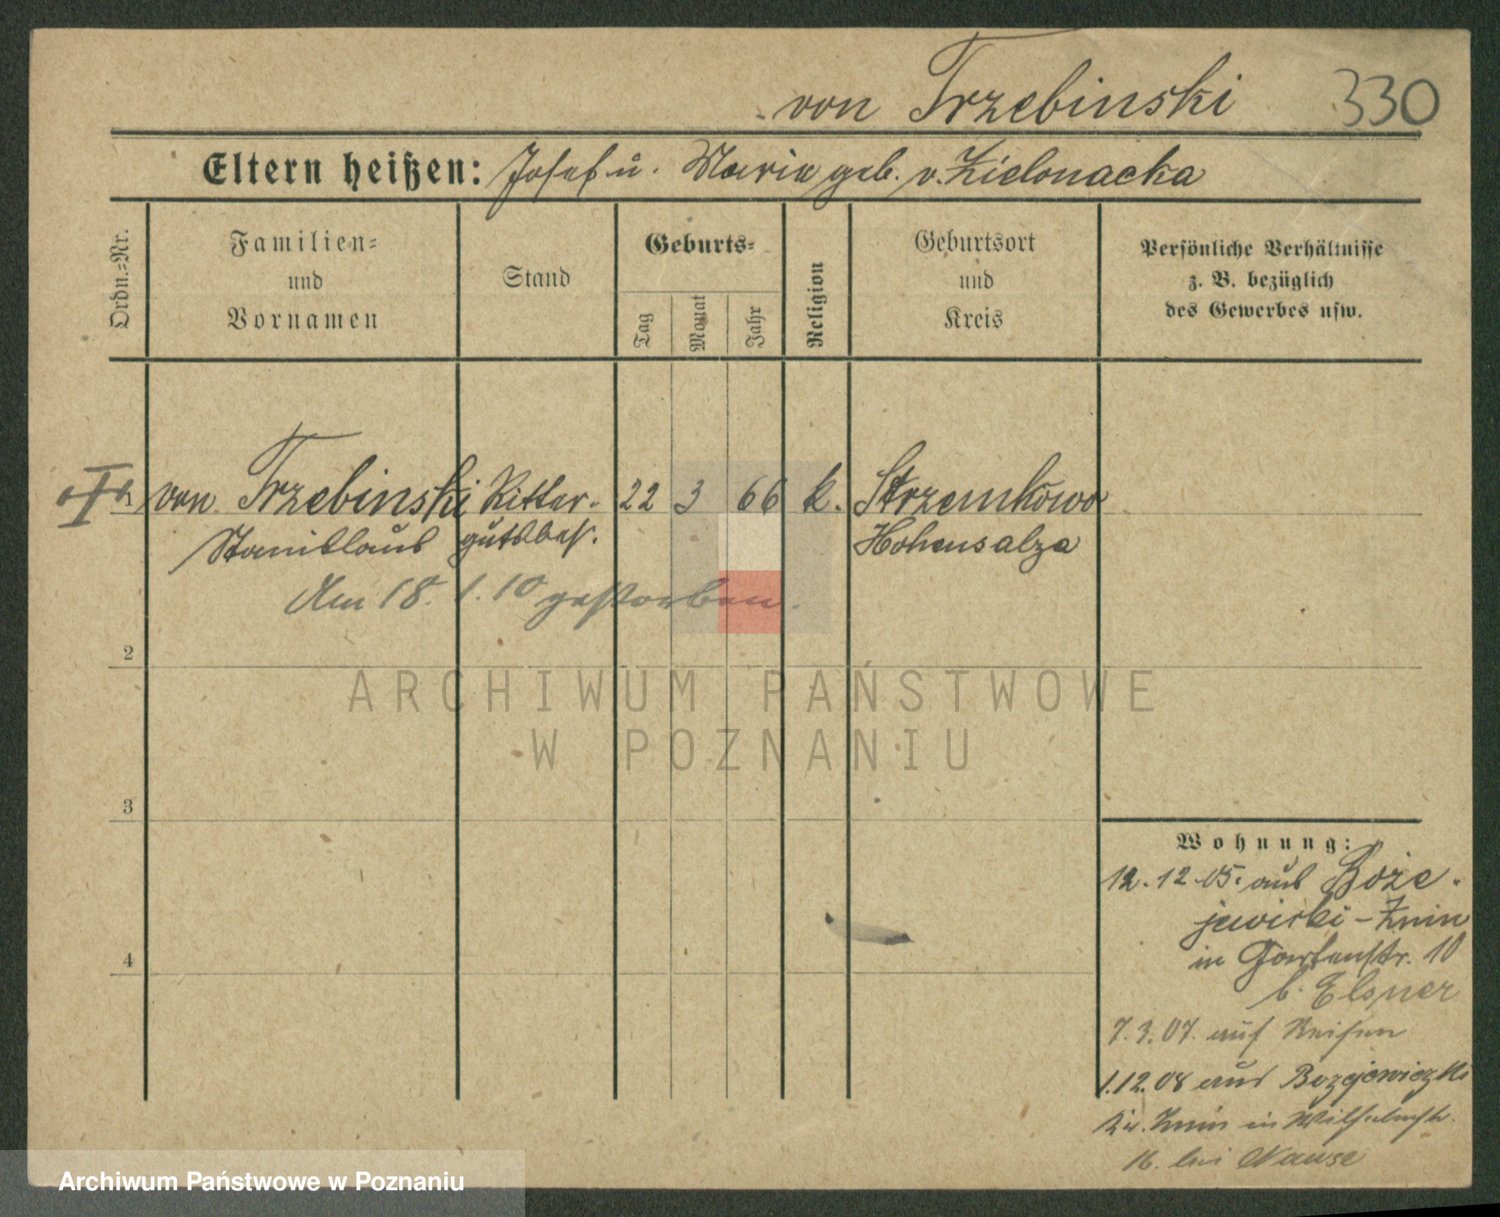 von Trzebinski 330
Eltern heißen: Josef u. Maria geb. v. Zielonacka
Ordn.-Nr.
Familien-
und
Vornamen
Stand
Geburts-
Tag
Monat
Jahr
Religion
Geburtsort
und
Kreis
Persönliche Verhältnisse
z. B. bezüglich
des Gewerbes usw.
1 von Trzebinski Ritter- 22 3 66 k. Strzemkowo
Stanislaus gutsbes. Hohensalza
Am 18. 1. 10 gestorben.
2
ARCHIWUM PAŃSTWOWE
W POZNANIU
3
4
Wohnung:
12. 12. 05. aus Boże-
jewicki - Znin
in Gartenstr. 10
b. Elsner
7. 3. 07. auf Reisen
1. 12. 08 aus Bozejewiczki
Kr. Znin in Wilhelmstr.
16. bei Nause
Archiwum Państwowe w Poznaniu